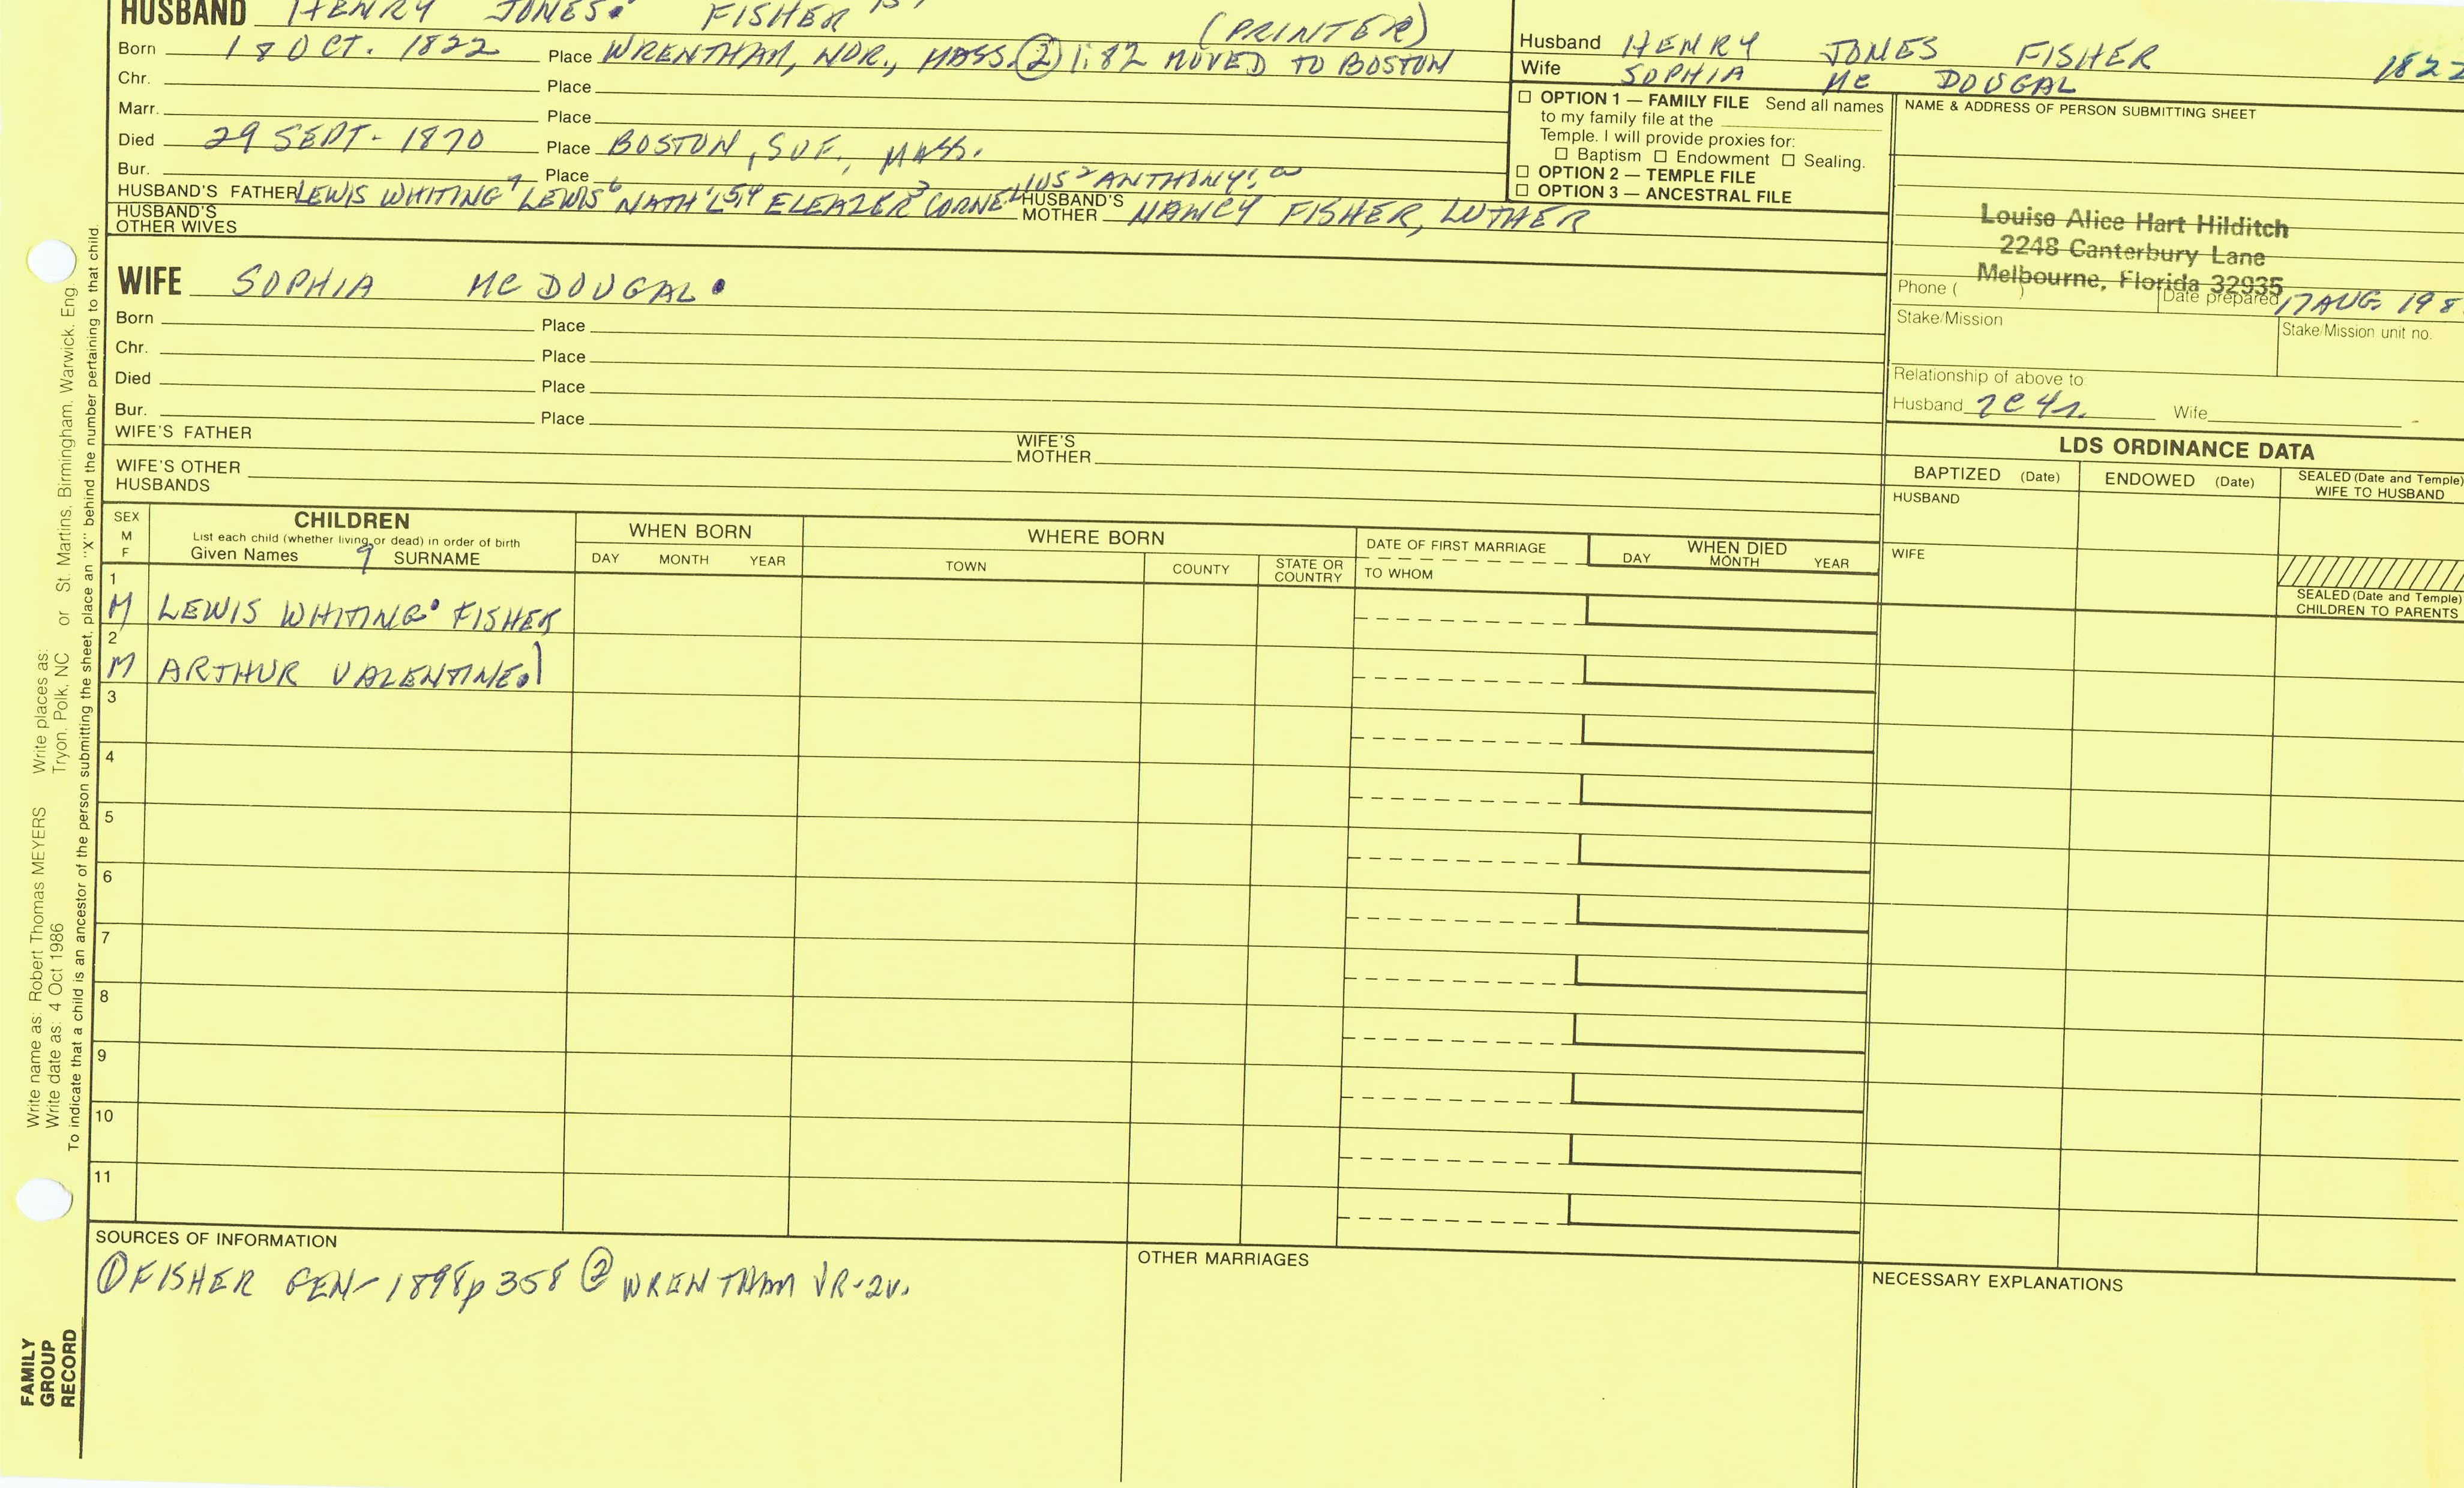 HUSBAND HENRY JONES. FISHER
(PRINTER)
Born 18 OCT. 1822 Place WRENTHAM, NOR., MASS. ② 1:82 MOVED TO BOSTON
Chr. Place
Marr. Place
Died 29 SEPT. 1870 Place BOSTON, SUF., MASS.
Bur. Place
HUSBAND'S FATHER LEWIS WHITING 7 LEWIS 6 NATH'L 5,4 ELEAZER 3 CORNELIUS 2 ANTHONY 1 HUSBAND'S MOTHER NANCY FISHER, LUTHER
HUSBAND'S OTHER WIVES
WIFE SOPHIA MC DOUGAL.
Born Place
Chr. Place
Died Place
Bur. Place
WIFE'S FATHER WIFE'S MOTHER
WIFE'S OTHER HUSBANDS
Husband HENRY JONES FISHER 1822
Wife SOPHIA MC DOUGAL
☐ OPTION 1 — FAMILY FILE Send all names
to my family file at the
Temple. I will provide proxies for:
☐ Baptism ☐ Endowment ☐ Sealing.
☐ OPTION 2 — TEMPLE FILE
☐ OPTION 3 — ANCESTRAL FILE
NAME & ADDRESS OF PERSON SUBMITTING SHEET
Louise Alice Hart Hilditch
2248 Canterbury Lane
Melbourne, Florida 32935
Phone ( ) Date prepared 17 AUG 198
Stake/Mission Stake/Mission unit no.
Relationship of above to
Husband 7C4R. Wife
LDS ORDINANCE DATA
BAPTIZED (Date) ENDOWED (Date) SEALED (Date and Temple)
WIFE TO HUSBAND
HUSBAND
WIFE
SEALED (Date and Temple)
CHILDREN TO PARENTS
SEX
M
F
CHILDREN
List each child (whether living or dead) in order of birth
Given Names 9 SURNAME
WHEN BORN
DAY MONTH YEAR
WHERE BORN
TOWN COUNTY STATE OR COUNTRY
DATE OF FIRST MARRIAGE
TO WHOM
WHEN DIED
DAY MONTH YEAR
1
M LEWIS WHITING. FISHER
2
M ARTHUR VALENTINE.
3
4
5
6
7
8
9
10
11
SOURCES OF INFORMATION
① FISHER GEN-1898 p 358 ② WRENTHAM VR-2v.
OTHER MARRIAGES
NECESSARY EXPLANATIONS
Write name as: Robert Thomas MEYERS Write places as:
Write date as: 4 Oct 1986 Tryon, Polk, NC or St. Martins, Birmingham, Warwick, Eng
To indicate that a child is an ancestor of the person submitting the sheet, place an "X" behind the number pertaining to that child.
FAMILY
GROUP
RECORD